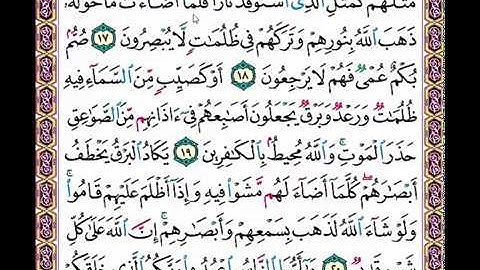 مَثَلُهُمْ كَمَثَلِ الَّذِي اسْتَوْقَدَ نَارًا فَلَمَّا أَضَاءَتْ مَا حَوْلَهُ
ذَهَبَ اللَّهُ بِنُورِهِمْ وَتَرَكَهُمْ فِي ظُلُمَاتٍ لَّا يُبْصِرُونَ ١٧ صُمٌّ
بُكْمٌ عُمْيٌ فَهُمْ لَا يَرْجِعُونَ ١٨ أَوْ كَصَيِّبٍ مِّنَ السَّمَاءِ فِيهِ
ظُلُمَاتٌ وَرَعْدٌ وَبَرْقٌ يَجْعَلُونَ أَصَابِعَهُمْ فِي ءَاذَانِهِم مِّنَ الصَّوَاعِقِ
حَذَرَ الْمَوْتِ وَاللَّهُ مُحِيطٌ بِالْكَافِرِينَ ١٩ يَكَادُ الْبَرْقُ يَخْطَفُ
أَبْصَارَهُمْ كُلَّمَا أَضَاءَ لَهُم مَّشَوْا فِيهِ وَإِذَا أَظْلَمَ عَلَيْهِمْ قَامُوا
وَلَوْ شَاءَ اللَّهُ لَذَهَبَ بِسَمْعِهِمْ وَأَبْصَارِهِمْ إِنَّ اللَّهَ عَلَىٰ كُلِّ
شَيْءٍ قَدِيرٌ ٢٠ يَا أَيُّهَا النَّاسُ اعْبُدُوا رَبَّكُمُ الَّذِي خَلَقَكُمْ